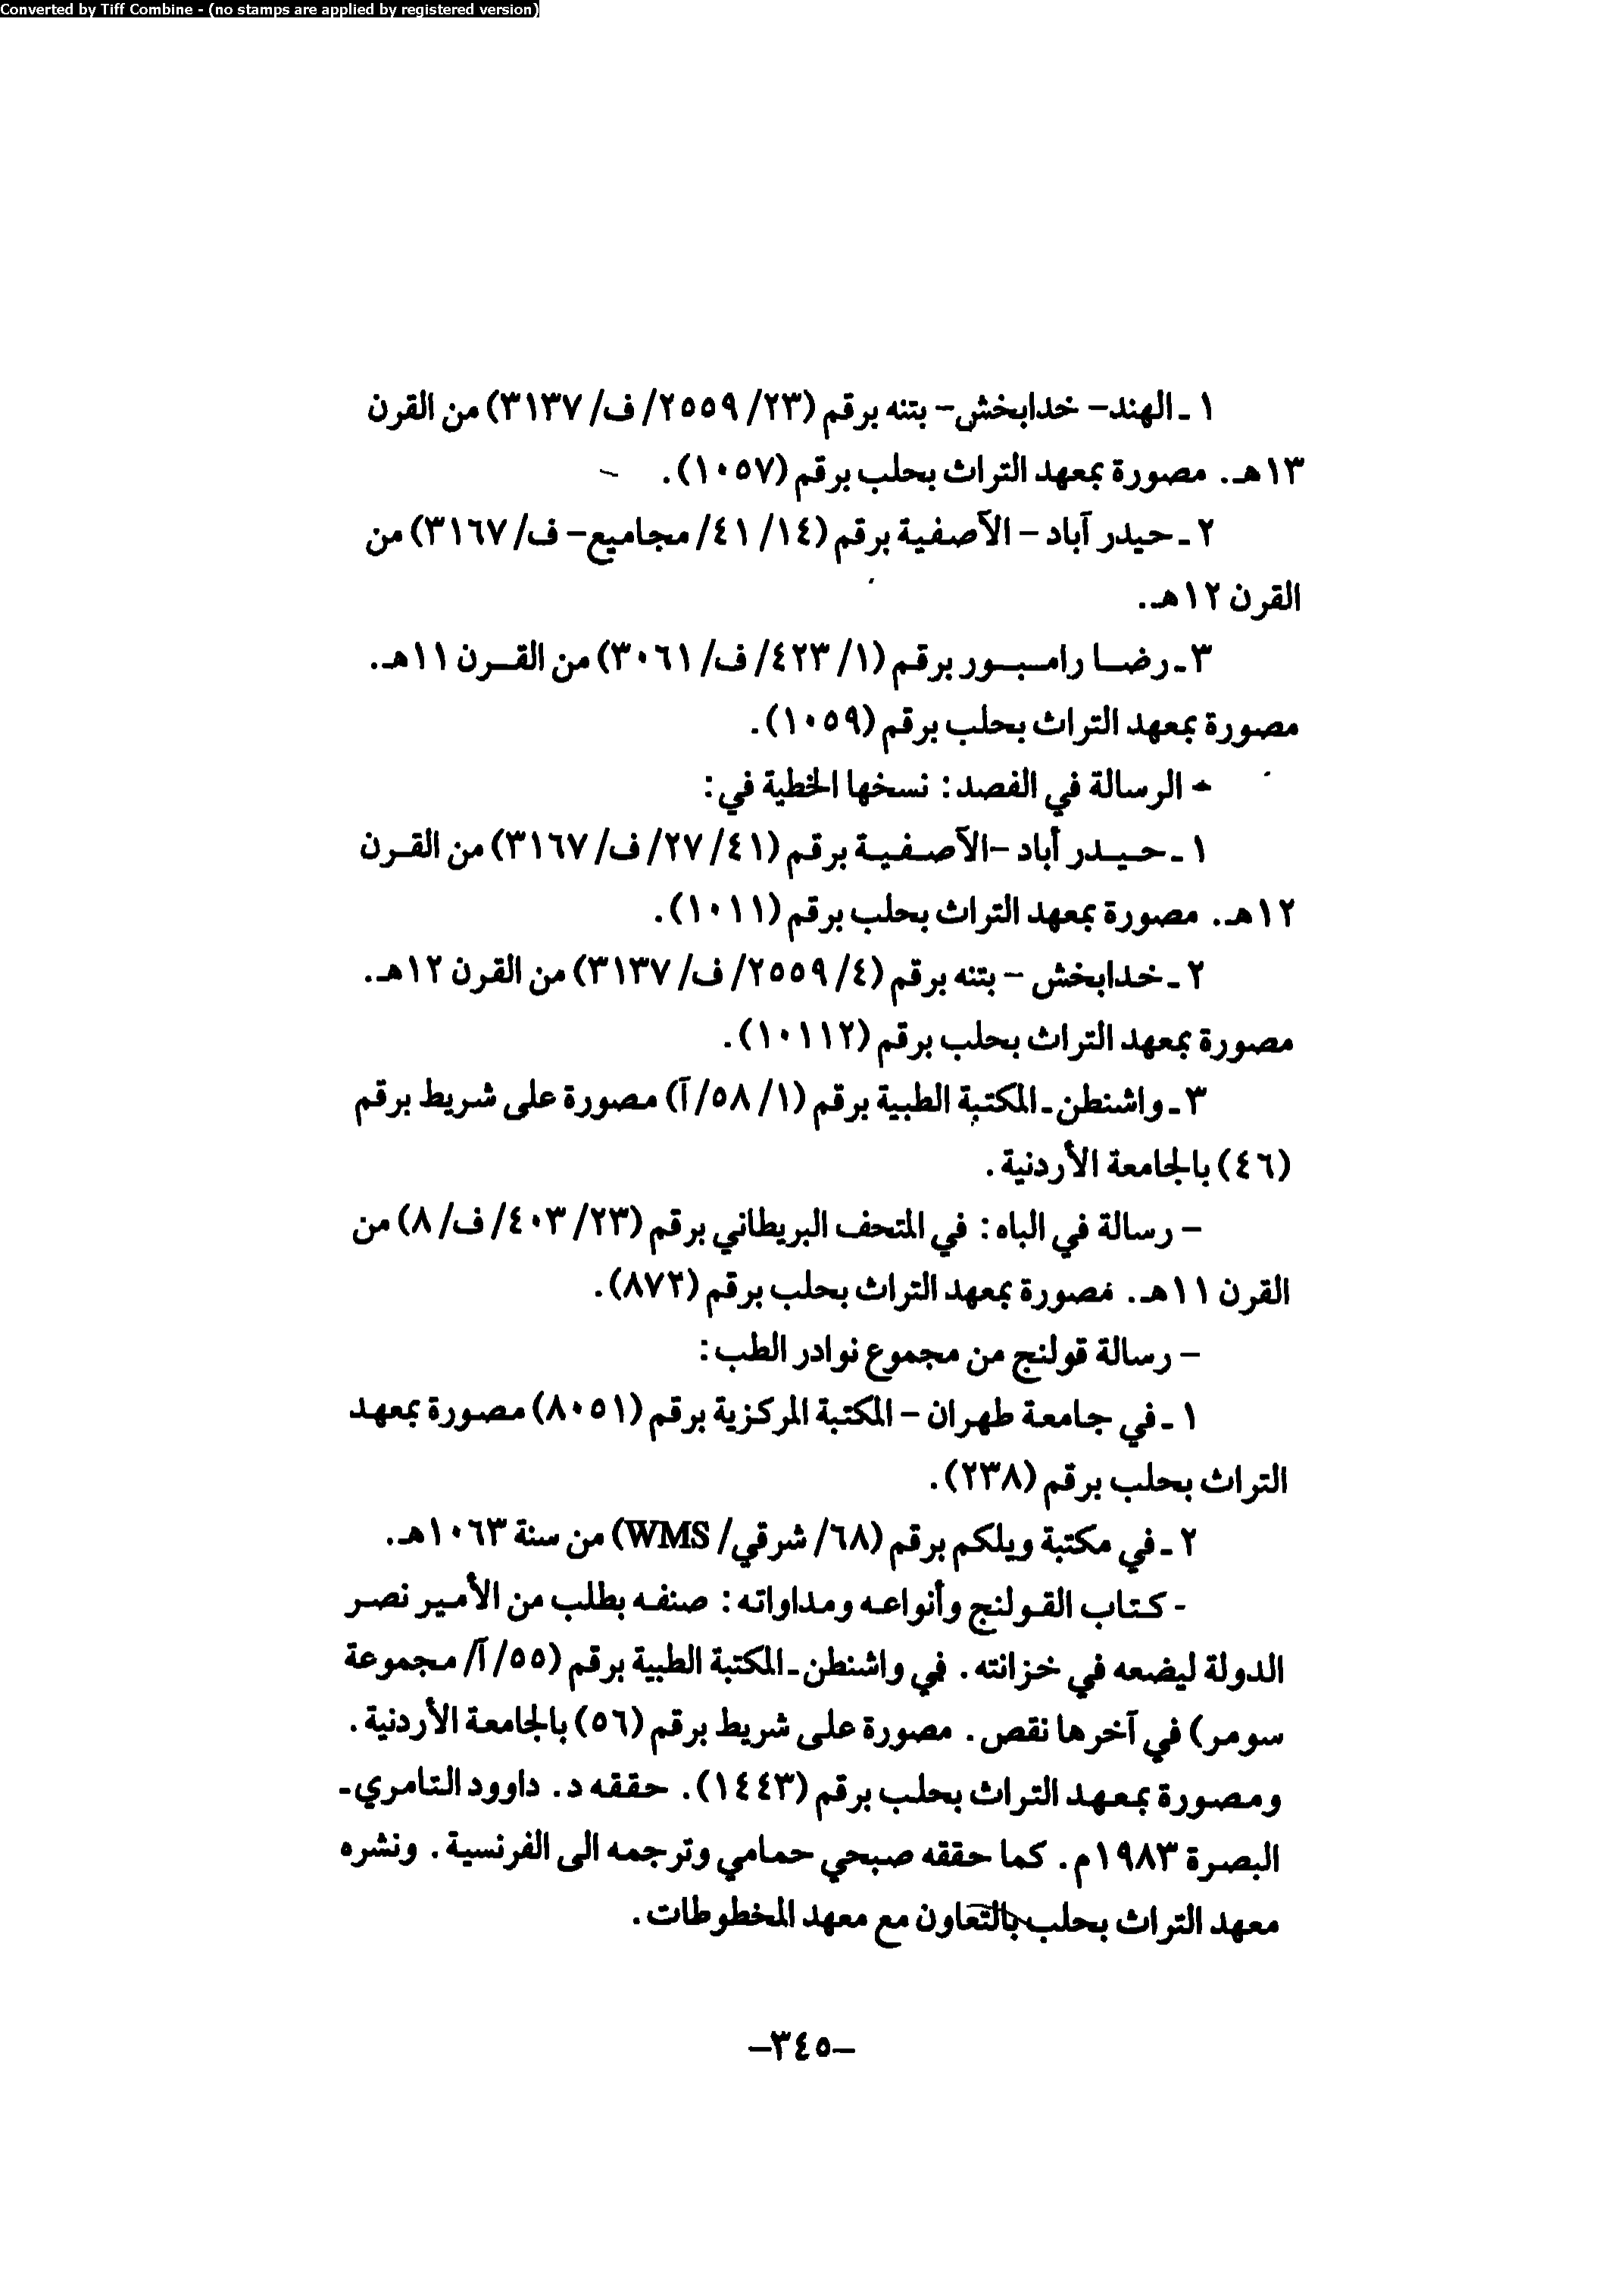 Converted by Tiff Combine - (no stamps are applied by registered version)
١ ـ الهند– خدابخش– بتنه برقم (٢٣/ ٢٥٥٩/ ف/ ٣١٣٧) من القرن
١٣هـ. مصورة بمعهد التراث بحلب برقم (١٠٥٧).
٢ ـ حيدر آباد – الآصفية برقم (١٤/ ٤١/ مجاميع– ف/ ٣١٦٧) من
القرن ١٢هـ.
٣ ـ رضا رامبور برقم (١/ ٤٢٣/ ف/ ٣٠٦١) من القرن ١١هـ.
مصورة بمعهد التراث بحلب برقم (١٠٥٩).
– الرسالة في الفصد: نسخها الخطية في:
١ ـ حيدر أباد –الآصفية برقم (٤١/ ٢٧/ ف/ ٣١٦٧) من القرن
١٢هـ. مصورة بمعهد التراث بحلب برقم (١٠١١).
٢ ـ خدابخش – بتنه برقم (٤/ ٢٥٥٩/ ف/ ٣١٣٧) من القرن ١٢هـ.
مصورة بمعهد التراث بحلب برقم (١٠١١٢).
٣ ـ واشنطن ـ المكتبة الطبية برقم (١/ ٥٨/ آ) مصورة على شريط برقم
(٤٦) بالجامعة الأردنية.
– رسالة في الباه: في المتحف البريطاني برقم (٢٣/ ٤٠٣/ ف/ ٨) من
القرن ١١هـ. مصورة بمعهد التراث بحلب برقم (٨٧٢).
– رسالة قولنج من مجموع نوادر الطب:
١ ـ في جامعة طهران – المكتبة المركزية برقم (٨٠٥١) مصورة بمعهد
التراث بحلب برقم (٢٣٨).
٢ ـ في مكتبة ويلكم برقم (٦٨/ شرقي/ WMS) من سنة ١٠٦٣هـ.
- كتاب القولنج وأنواعه ومداواته: صنفه بطلب من الأمير نصر
الدولة ليضعه في خزانته. في واشنطن ـ المكتبة الطبية برقم (٥٥/ آ/ مجموعة
سومر) في آخرها نقص. مصورة على شريط برقم (٥٦) بالجامعة الأردنية.
ومصورة بمعهد التراث بحلب برقم (١٤٤٣). حققه د. داوود التامري ـ
البصرة ١٩٨٣م. كما حققه صبحي حمامي وترجمه الى الفرنسية. ونشره
معهد التراث بحلب بالتعاون مع معهد المخطوطات.
–٣٤٥–